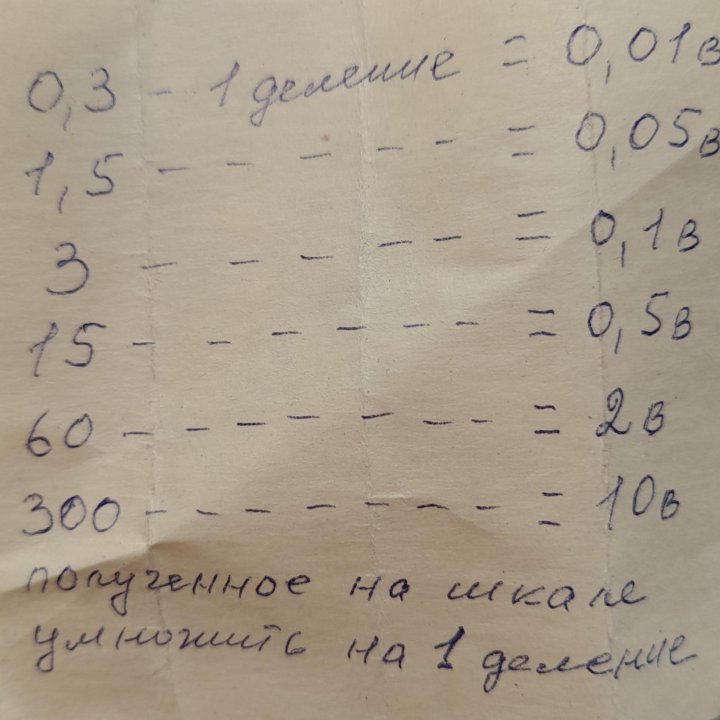 0,3 - 1 деление = 0,01в
1,5 - - - - - = 0,05в
3 - - - - - = 0,1в
15 - - - - - - = 0,5в
60 - - - - - - - = 2в
300 - - - - - - - = 10в
полученное на шкале
умножить на 1 деление